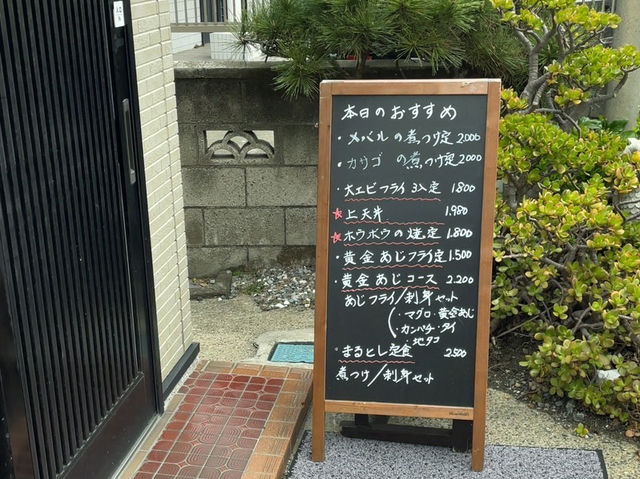 本日のおすすめ
・メバルの煮つけ定 2000
・カサゴ の煮つけ定 2000
・大エビフライ 3入定 1.800
★上天丼 1.980
★ホウボウの焼定 1.800
・黄金あじフライ定 1.500
・黄金あじコース 2.200
あじフライ/刺身セット
・マグロ・黄金あじ
・カンパチ・タイ
・地タコ
・まるとし定食 2500
煮つけ/刺身セット